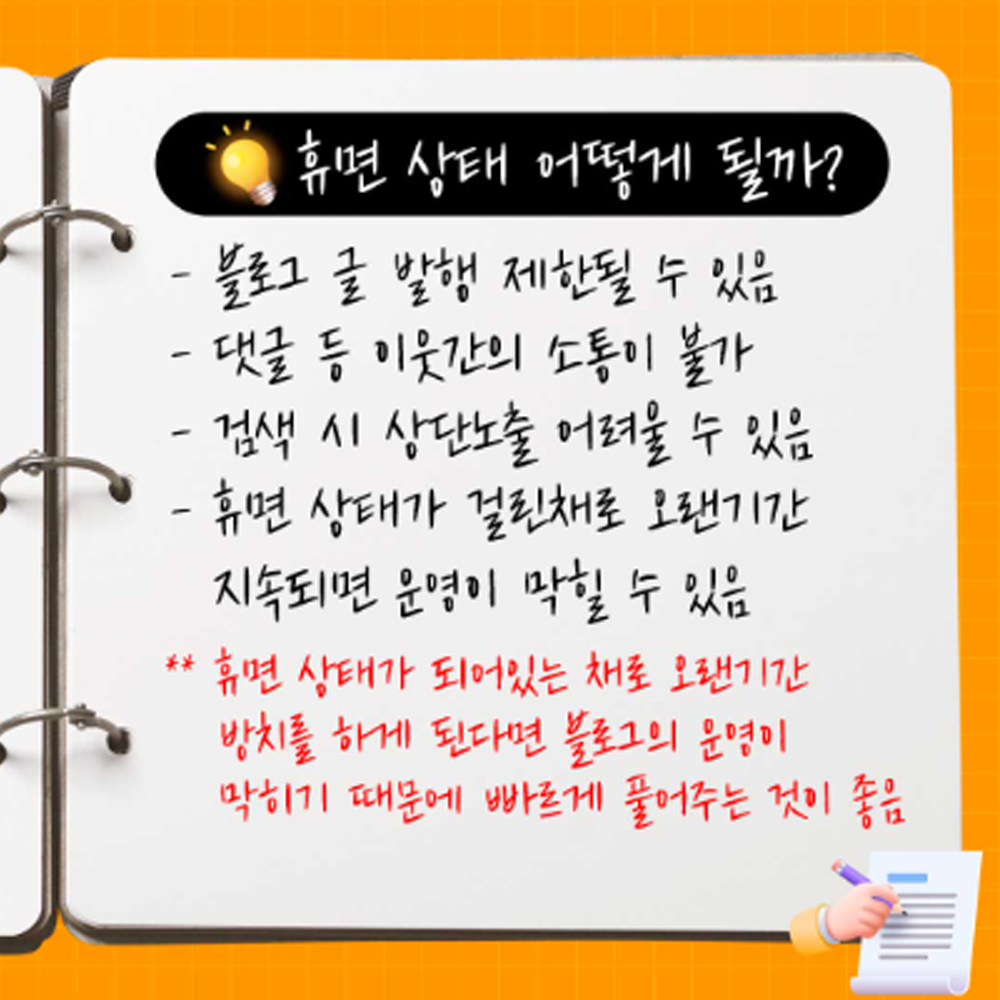 휴면 상태 어떻게 될까?
- 블로그 글 발행 제한될 수 있음
- 댓글 등 이웃간의 소통이 불가
- 검색 시 상단노출 어려울 수 있음
- 휴면 상태가 걸린채로 오랜기간
지속되면 운영이 막힐 수 있음
** 휴면 상태가 되어있는 채로 오랜기간
방치를 하게 된다면 블로그의 운영이
막히기 때문에 빠르게 풀어주는 것이 좋음